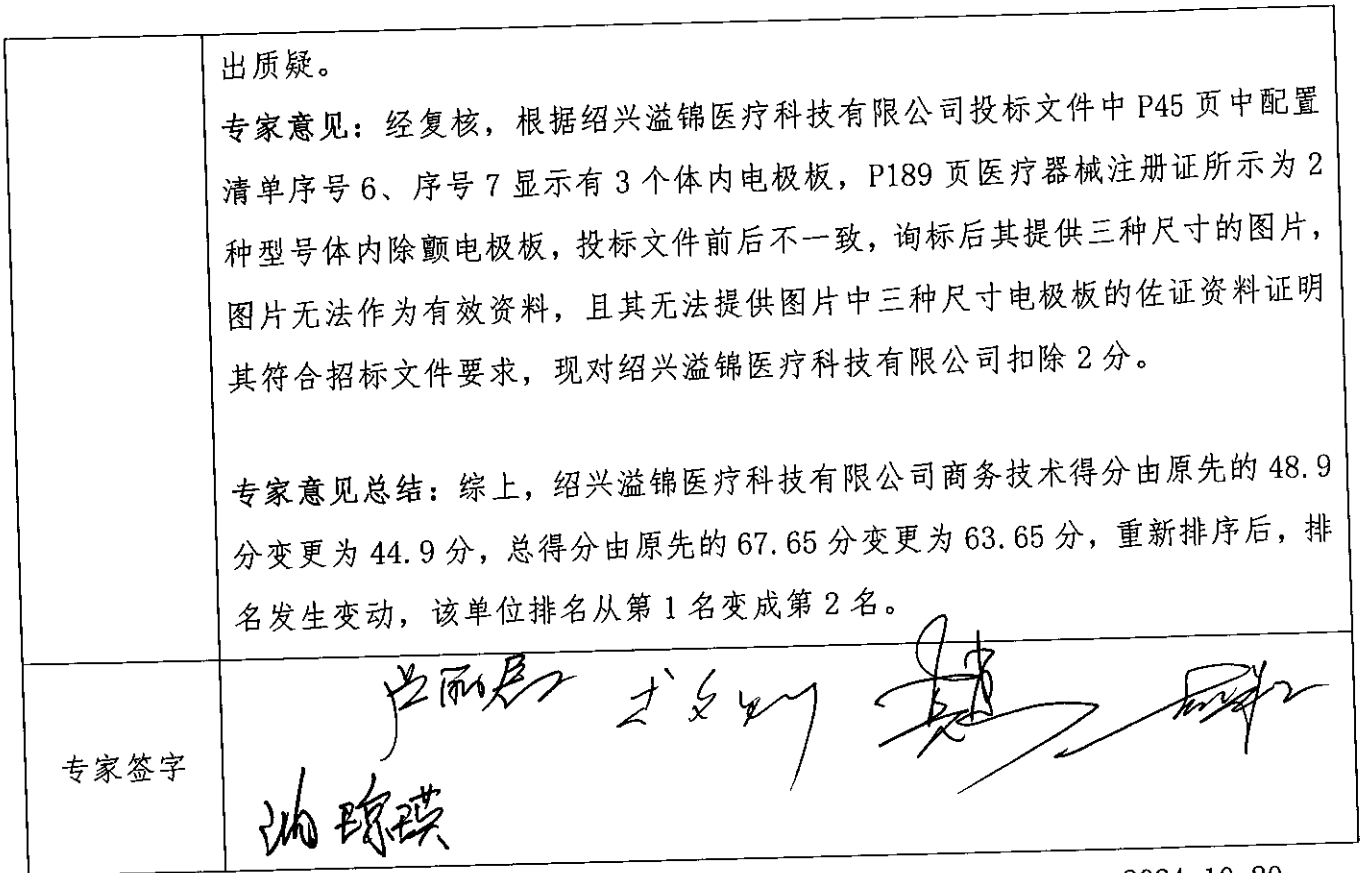 出质疑。
专家意见：经复核，根据绍兴溢锦医疗科技有限公司投标文件中 P45 页中配置
清单序号 6、序号 7 显示有 3 个体内电极板，P189 页医疗器械注册证所示为 2
种型号体内除颤电极板，投标文件前后不一致，询标后其提供三种尺寸的图片，
图片无法作为有效资料，且其无法提供图片中三种尺寸电极板的佐证资料证明
其符合招标文件要求，现对绍兴溢锦医疗科技有限公司扣除 2 分。
专家意见总结：综上，绍兴溢锦医疗科技有限公司商务技术得分由原先的 48.9
分变更为 44.9 分，总得分由原先的 67.65 分变更为 63.65 分，重新排序后，排
名发生变动，该单位排名从第 1 名变成第 2 名。
专家签字